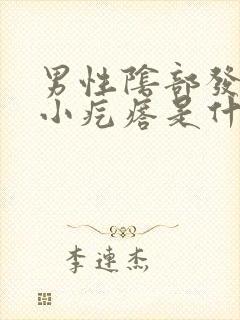 男性陰部發
小疙瘩是什
李連杰